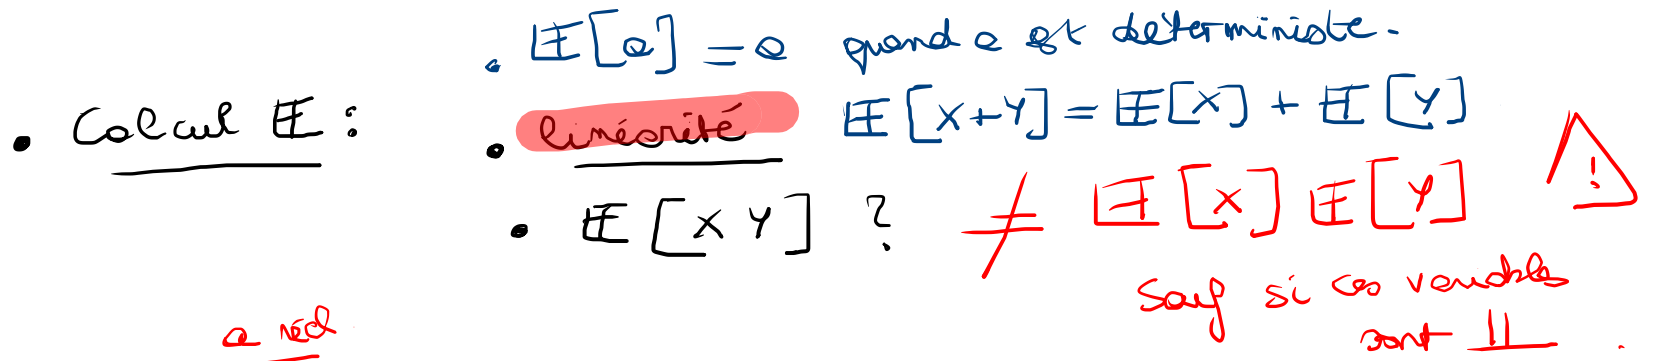 • 𝔼[a] = a quand a est déterministe.
• Calcul 𝔼 :
• linéarité 𝔼[X+Y] = 𝔼[X] + 𝔼[Y]
• 𝔼[XY] ? ≠ 𝔼[X] 𝔼[Y] !
Sauf si les variables
sont ⫫.
a réel